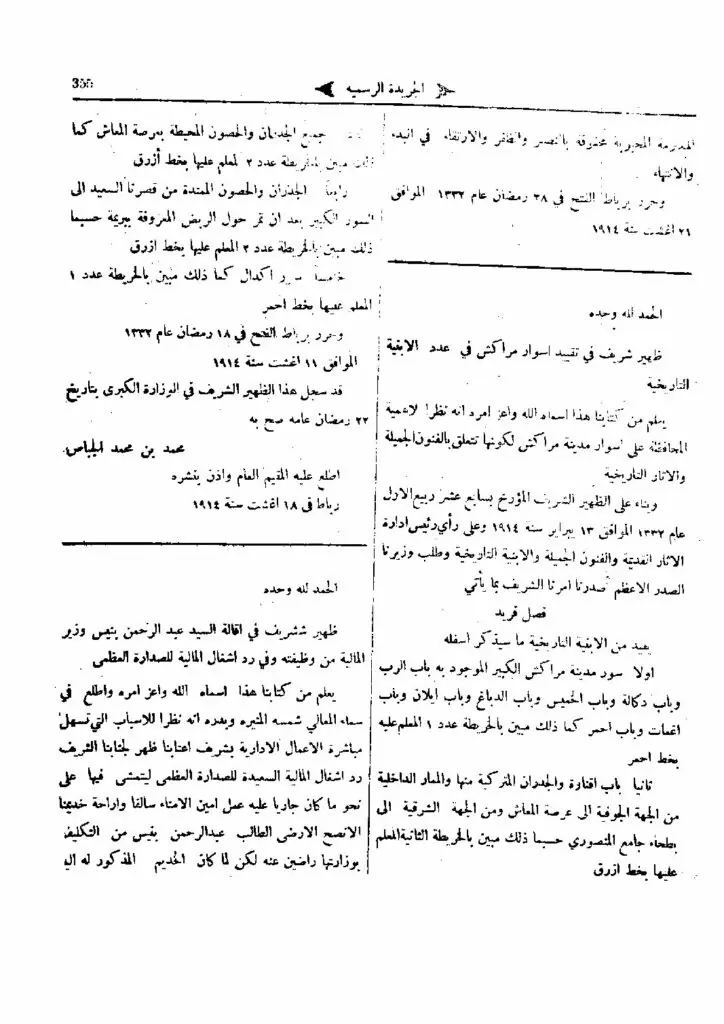 الجريدة الرسمية
355
المدرعة المحبوبة محفوفة بالنصر والظفر والارتقاء في البدء
والانتهاء
وحرر برباط الفتح في ٢٨ رمضان عام ١٣٣٢ الموافق
٢١ اغشت سنة ١٩١٤
الحمد لله وحده
ظهير شريف في تقييد اسوار مراكش في عدد الابنية
التاريخية
يعلم من كتابنا هذا اسماه الله واعز امره انه نظرا لاهمية
المحافظة على اسوار مدينة مراكش لكونها تتعلق بالفنون الجميلة
والاثار التاريخية
وبناء على الظهير الشريف المؤرخ بسابع عشر ربيع الاول
عام ١٣٣٢ الموافق ١٣ يبراير سنة ١٩١٤ وعلى رأي رئيس ادارة
الاثار القديمة والفنون الجميلة والابنية التاريخية وطلب وزيرنا
الصدر الاعظم أصدرنا امرنا الشريف بما يأتي
فصل فريد
يعيد من الابنية التاريخية ما سيذكر اسفله
اولا سور مدينة مراكش الكبير الموجود به باب الرب
وباب دكالة وباب الخميس وباب الدباغ وباب ايلان وباب
اغمات وباب احمر كما ذلك مبين بالخريطة عدد ١ المعلم عليه
بخط احمر
ثانيا باب اقناوة والجدران المتركبة منها والمعار الداخلية
من الجهة الجوفية الى عرصة المعاش ومن الجهة الشرقية الى
بطحاء جامع المنصوري حسبما ذلك مبين بالخريطة الثانية المعلم
عليها بخط ازرق
جميع الجدران والحصون المحيطة بعرصة المعاش كما
ذلك مبين بالخريطة عدد ٢ المعلم عليها بخط أزرق
رابعا الجدران والحصون الممتدة من قصرنا السعيد الى
السور الكبير بعد ان تمر حول الربض المعروفة ببريمة حسبما
ذلك مبين بالخريطة عدد ٢ المعلم عليها بخط ازرق
خامسا سور اكدال كما ذلك مبين بالخريطة عدد ١
المعلم عليها بخط احمر
وحرر برباط الفتح في ١٨ رمضان عام ١٣٣٢
الموافق ١١ اغشت سنة ١٩١٤
قد سجل هذا الظهير الشريف في الوزارة الكبرى بتاريخ
٢٢ رمضان عامه صح به
محمد بن محمد الجباص
اطلع عليه المقيم العام واذن بنشره
رباط في ١٨ اغشت سنة ١٩١٤
الحمد لله وحده
ظهير ششريف في اقالة السيد عبد الرحمن بنيس وزير
المالية من وظيفته وفي رد اشغال المالية للصدارة العظمى
يعلم من كتابنا هذا اسماه الله واعز امره واطلع في
سماء المعالي شمسه المنيره وبدره انه نظرا للاسباب التي تسهل
مباشرة الاعمال الادارية بشريف اعتابنا ظهر لجنابنا الشريف
رد اشغال المالية السعيدة للصدارة العظمى ليتمشى فيها على
نحو ما كان جاريا عليه عمل امين الامناء سالفا واراحة خديمنا
الانصح الارضى الطالب عبدالرحمن بنيس من التكليف
بوزارتها راضين عنه لكن لما كان الخديم المذكور له اليد